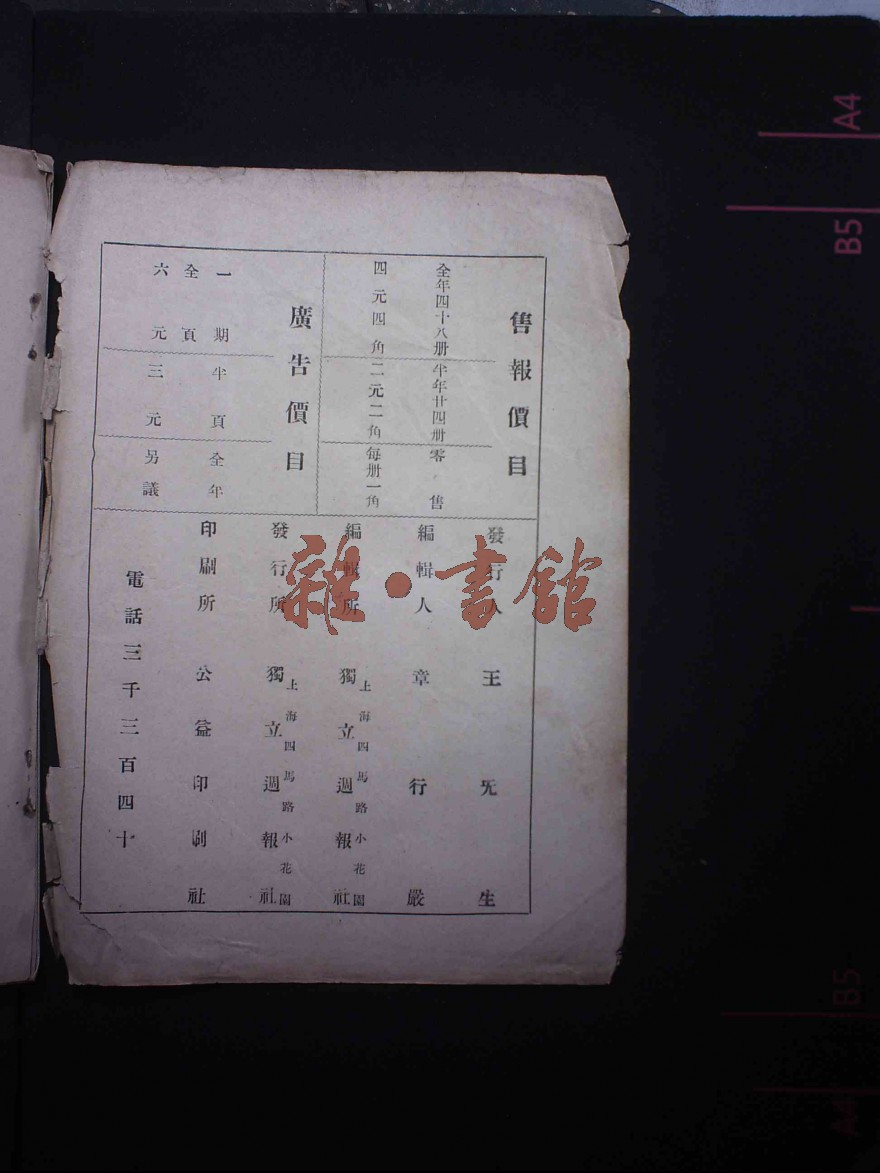 售報價目
全年四十八册 半年廿四册 零售
四元四角 二元二角 每册一角
廣告價目
一期 半頁 全年
全頁
六元 三元 另議
發行人 王旡生
編輯人 章行嚴
編輯所 上海四馬路小花園 獨立週報社
發行所 上海四馬路小花園 獨立週報社
印刷所 公益印刷社
電話三千三百四十
雜·書館
A4
B5
B5
A4